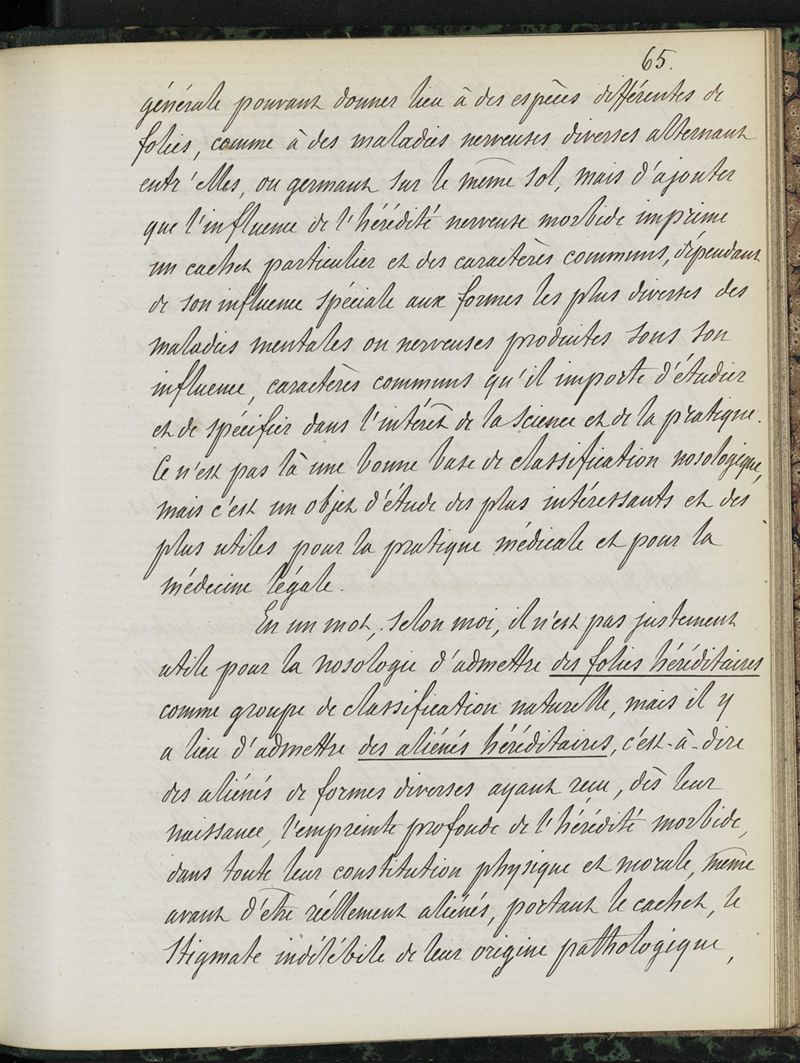 65.
générale pouvant donner lieu à des espèces différentes de
folies, comme à des maladies nerveuses diverses alternant
entr'elles, ou germant sur le même sol, mais d'ajouter
que l'influence de l'hérédité nerveuse morbide imprime
un cachet particulier et des caractères communs, dépendant
de son influence spéciale aux formes les plus diverses des
maladies mentales ou nerveuses produites sous son
influence, caractères communs qu'il importe d'étudier
et de spécifier dans l'intérêt de la science et de la pratique.
Ce n'est pas là une bonne base de classification nosologique,
mais c'est un objet d'étude des plus intéressants et des
plus utiles pour la pratique médicale et pour la
médecine légale.
En un mot, selon moi, il n'est pas justement
utile pour la nosologie d'admettre des folies héréditaires
comme groupe de classification naturelle, mais il y
a lieu d'admettre des aliénés héréditaires, c'est-à-dire
des aliénés de formes diverses ayant reçu, dès leur
naissance, l'empreinte profonde de l'hérédité morbide,
dans toute leur constitution physique et morale, même
avant d'être réellement aliénés, portant le cachet, le
stigmate indélébile de leur origine pathologique,